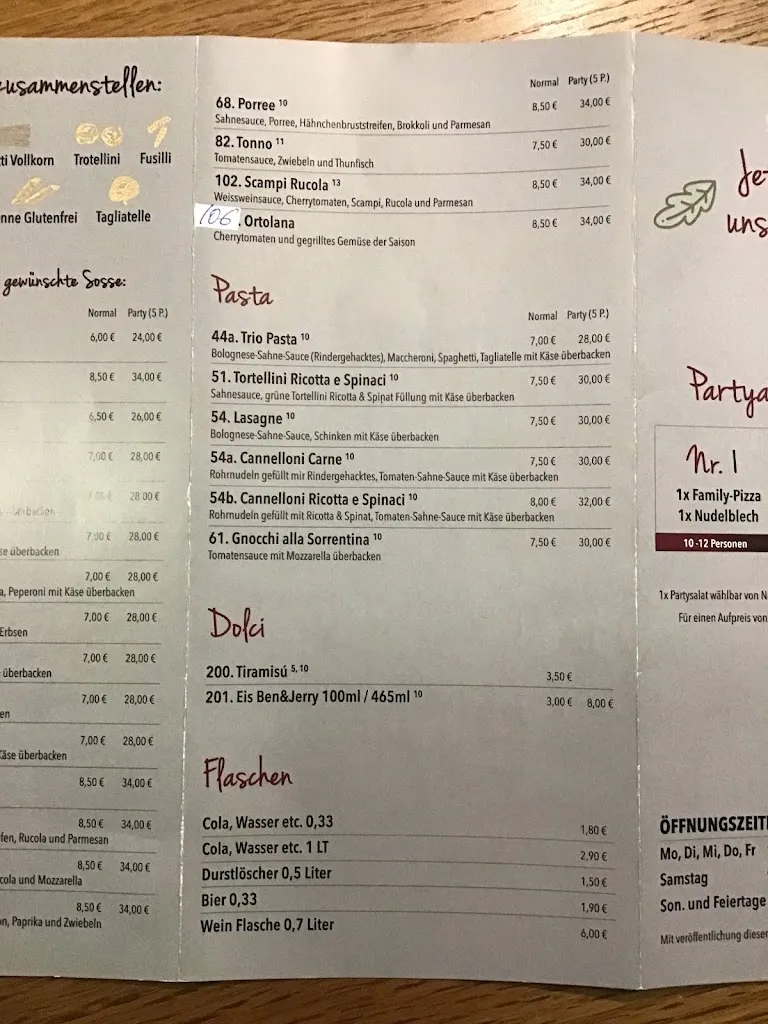 zusammenstellen:
Vollkorn Trotellini Fusilli
Glutenfrei Tagliatelle
gewünschte Sosse:
Normal Party (5 P.)
6,00 € 24,00 €
8,50 € 34,00 €
6,50 € 26,00 €
7,00 € 28,00 €
28,00 €
7,00 € 28,00 €
überbacken
7,00 € 28,00 €
Peperoni mit Käse überbacken
7,00 € 28,00 €
Erbsen
7,00 € 28,00 €
überbacken
7,00 € 28,00 €
7,00 € 28,00 €
Käse überbacken
8,50 € 34,00 €
8,50 € 34,00 €
Rucola und Parmesan
8,50 € 34,00 €
und Mozzarella
8,50 € 34,00 €
Paprika und Zwiebeln
Normal Party (5 P.)
68. Porree 10 8,50 € 34,00 €
Sahnesauce, Porree, Hähnchenbruststreifen, Brokkoli und Parmesan
82. Tonno 11 7,50 € 30,00 €
Tomatensauce, Zwiebeln und Thunfisch
102. Scampi Rucola 13 8,50 € 34,00 €
Weissweinsauce, Cherrytomaten, Scampi, Rucola und Parmesan
106 . Ortolana 8,50 € 34,00 €
Cherrytomaten und gegrilltes Gemüse der Saison
Pasta
Normal Party (5 P.)
44a. Trio Pasta 10 7,00 € 28,00 €
Bolognese-Sahne-Sauce (Rindergehacktes), Maccheroni, Spaghetti, Tagliatelle mit Käse überbacken
51. Tortellini Ricotta e Spinaci 10 7,50 € 30,00 €
Sahnesauce, grüne Tortellini Ricotta & Spinat Füllung mit Käse überbacken
54. Lasagne 10 7,50 € 30,00 €
Bolognese-Sahne-Sauce, Schinken mit Käse überbacken
54a. Cannelloni Carne 10 7,50 € 30,00 €
Rohrnudeln gefüllt mir Rindergehacktes, Tomaten-Sahne-Sauce mit Käse überbacken
54b. Cannelloni Ricotta e Spinaci 10 8,00 € 32,00 €
Rohrnudeln gefüllt mit Ricotta & Spinat, Tomaten-Sahne-Sauce mit Käse überbacken
61. Gnocchi alla Sorrentina 10 7,50 € 30,00 €
Tomatensauce mit Mozzarella überbacken
Dolci
200. Tiramisú 5, 10 3,50 €
201. Eis Ben&Jerry 100ml / 465ml 10 3,00 € 8,00 €
Flaschen
Cola, Wasser etc. 0,33 1,80 €
Cola, Wasser etc. 1 LT 2,90 €
Durstlöscher 0,5 Liter 1,50 €
Bier 0,33 1,90 €
Wein Flasche 0,7 Liter 6,00 €
uns
Nr. 1
1x Family-Pizza
1x Nudelblech
10 -12 Personen
1x Partysalat wählbar von
Für einen Aufpreis von
Mo, Di, Mi, Do, Fr
Samstag
Son. und Feiertage
Mit veröffentlichung